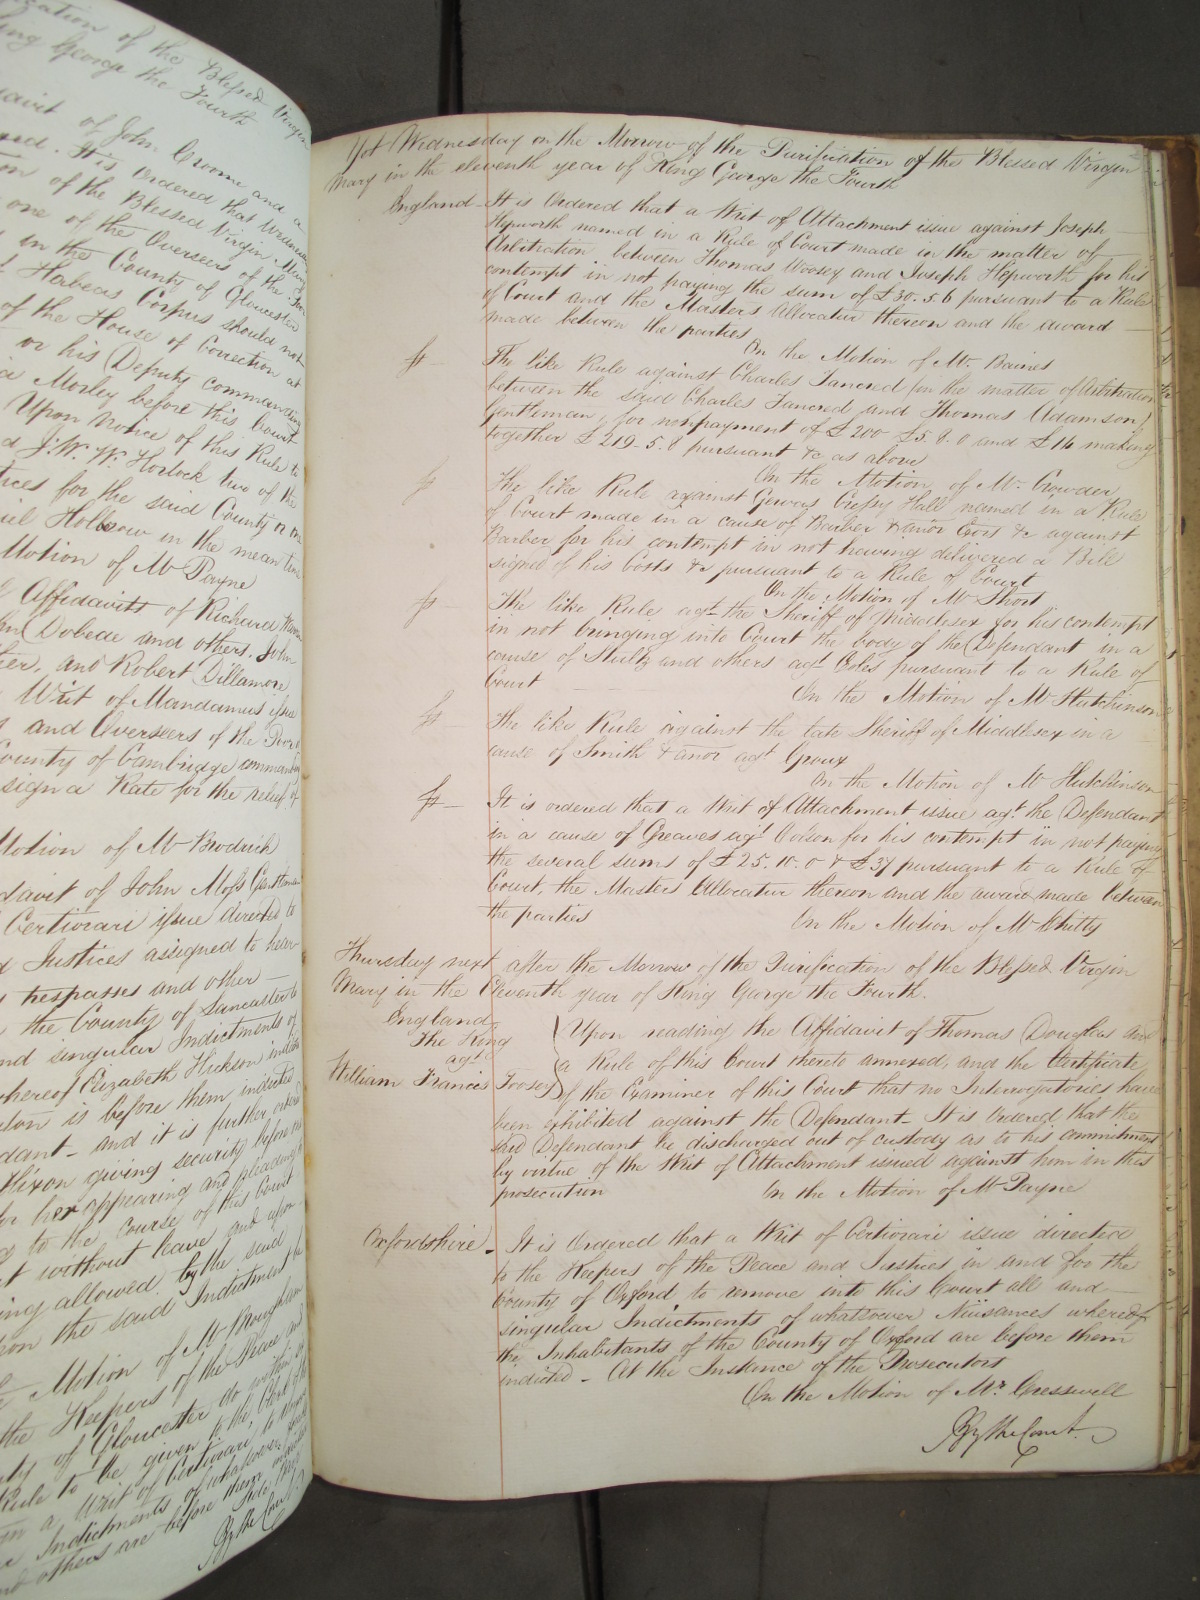 ization of the Blessed Virgin
King George the Fourth
davit of John Croome and a
It is Ordered that
of the Blessed Virgin Mary
one of the Overseers of the
in the County of Gloucester
Habeas Corpus should not
of the House of Correction at
or his Deputy commanding
Morley before this Court
Upon notice of this Rule to
J. W. W. Horlock two of the
tices for the said County or on
Hollow in the mean time
Motion of Mr Payne
Affidavits of Richard
Dobede and others, John
and Robert Dillamore
Writ of Mandamus issue
and Overseers of the Poor
County of Cambridge commanding
sign a Rate for the relief of
Motion of Mr Brodrick
davit of John Moss Gentleman
Certiorari issue directed to
Justices assigned to hear
trespasses and other
the County of Lancaster to
and singular Indictments of
whereof Elizabeth Hickson
is before them indicted
dant - and it is further ordered
Hixon giving security before
for her appearing and pleading
to the course of this Court
without leave and upon
being allowed by the said
upon the said Indictment
Motion of Mr Brougham
the Keepers of the Peace and
of Gloucester do within
Rule to be given to the Clerk of the
a Writ of Certiorari to
Indictments of whatsoever
and others are before them
Side Bar
By the Court
Yet Wednesday on the Morrow of the Purification of the Blessed Virgin
Mary in the eleventh year of King George the Fourth
England - It is Ordered that a Writ of Attachment issue against Joseph
Hepworth named in a Rule of Court made in the matter of
Arbitration between Thomas Woosey and Joseph Hepworth for his
contempt in not paying the sum of £30. 5 6 pursuant to a Rule
of Court and the Master's Allocatur thereon and the award
made between the parties
On the Motion of Mr. Baines
The like Rule against Charles Tancred (in the matter of Arbitration
between the said Charles Tancred and Thomas Adamson
Gentleman) for nonpayment of £200 £5. 8. 0 and £14 making
together £219. 5. 8 pursuant &c as above
On the Motion of Mr. Crowder
The like Rule against Gervas Cressy Hall named in a Rule
of Court made in a cause of Barber & anor Exors &c against
Barber for his contempt in not having delivered a Bill
signed of his Costs &c pursuant to a Rule of Court
On the Motion of Mr Short
The like Rule agt the Sheriff of Middlesex for his contempt
in not bringing into Court the body of the Defendant in a
cause of Stultz and others agt Coles pursuant to a Rule of
Court
On the Motion of Mr Hutchinson
The like Rule against the late Sheriff of Middlesex in a
cause of Smith & anor agt Groux
On the Motion of Mr Hutchinson
It is ordered that a Writ of Attachment issue agt. the Defendant
in a cause of Greaves agt Colson for his contempt in not paying
the several sums of £25. 10. 0 & £37 pursuant to a Rule of
Court, the Masters Allocatur thereon and the award made between
the parties
On the Motion of Mr Chitty
Thursday next after the Morrow of the Purification of the Blessed Virgin
Mary in the Eleventh year of King George the Fourth.
England
The King
agt
William Francis Toosey
Upon reading the Affidavit of Thomas Douglas and
a Rule of this Court thereto annexed, and the Certificate
of the Examiner of this Court that no Interrogatories have
been exhibited against the Defendant - It is Ordered that the
said Defendant be discharged out of custody as to his commitment
by virtue of the Writ of Attachment issued against him in this
prosecution
On the Motion of Mr Payne
Oxfordshire - It is Ordered that a Writ of Certiorari issue directed
to the Keepers of the Peace and Justices in and for the
County of Oxford to remove into this Court all and
singular Indictments of whatsoever Nuisances whereof
the Inhabitants of the County of Oxford are before them
indicted - At the Instance of the Prosecutors
On the Motion of Mr. Cresswell
By the Court.